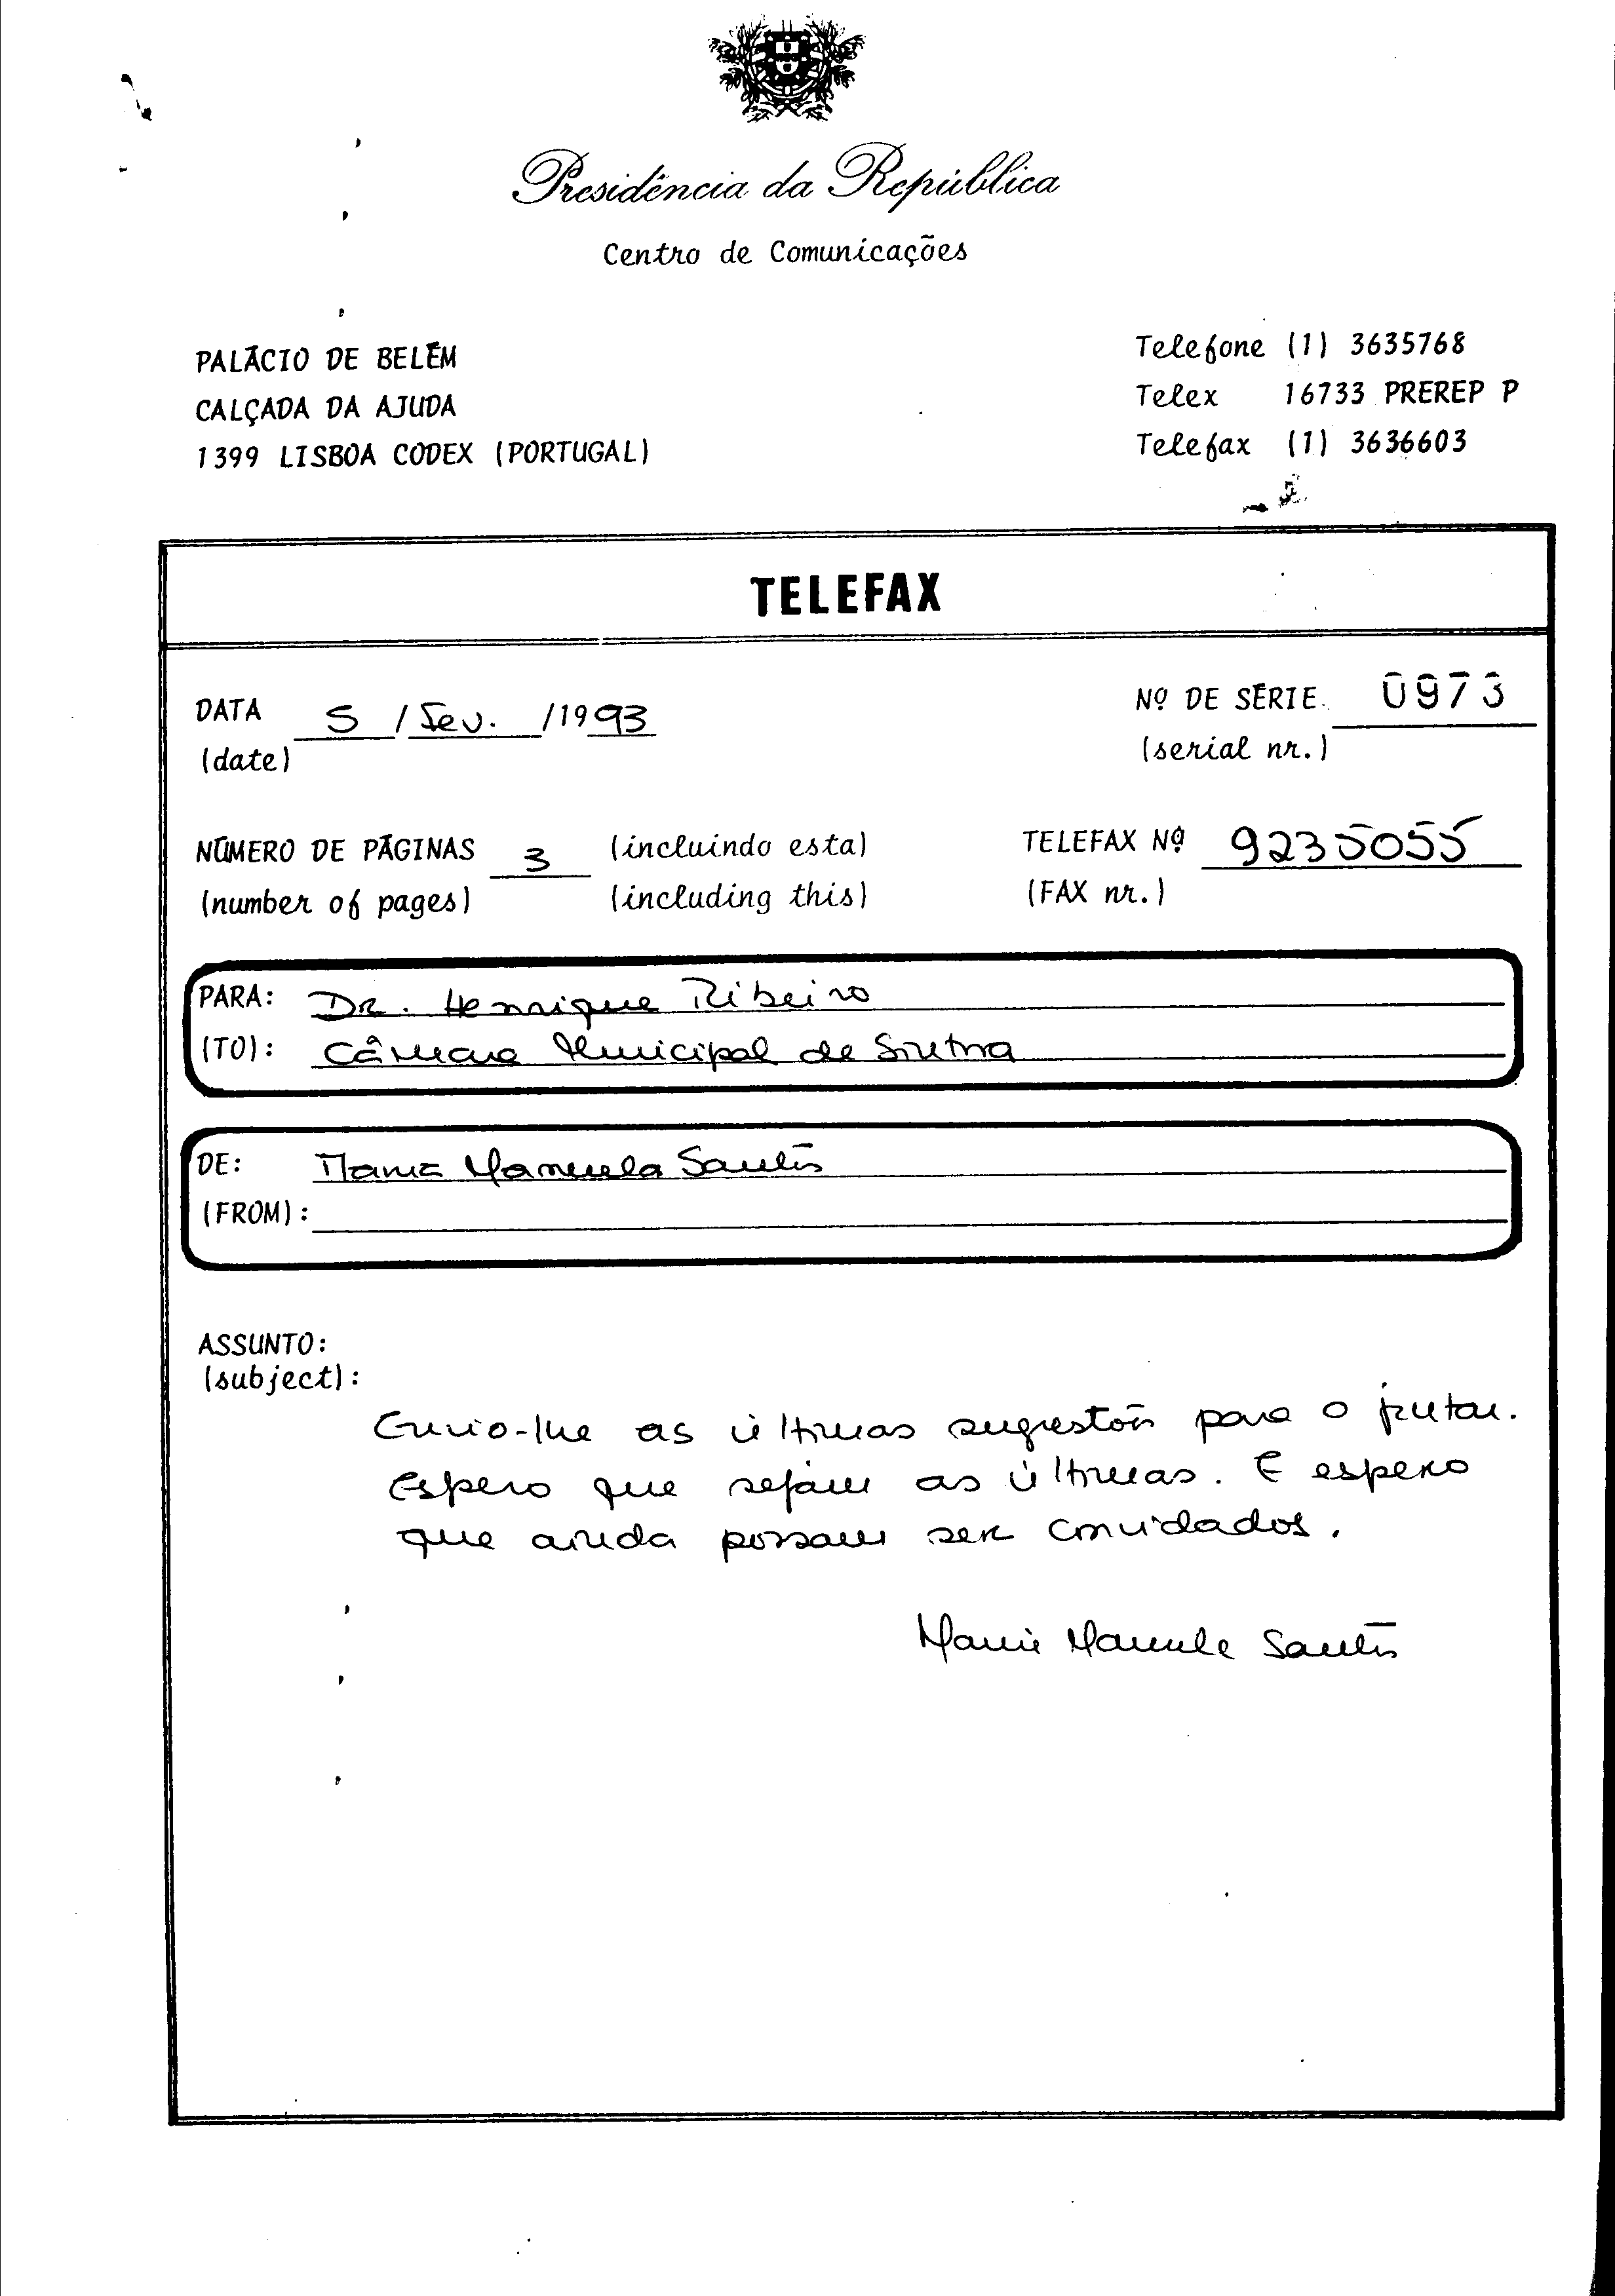 Presidência da República
Centro de Comunicações
PALÁCIO DE BELÉM
CALÇADA DA AJUDA
1399 LISBOA CODEX (PORTUGAL)
Telefone (1) 3635768
Telex 16733 PREREP P
Telefax (1) 3636603
TELEFAX
DATA 5 / Fev. /1993
(date)
Nº DE SÉRIE 0973
(serial nr.)
NÚMERO DE PÁGINAS 3 (incluindo esta)
(number of pages) (including this)
TELEFAX Nº 9235055
(FAX nr.)
PARA: Dr. Henrique Ribeiro
(TO): Câmara Municipal de Sintra
DE: Maria Manuela Santos
(FROM):
ASSUNTO:
(subject):
Envio-lhe as últimas sugestões para o jantar.
Espero que sejam as últimas. E espero
que ainda possam ser convidados.
Maria Manuela Santos